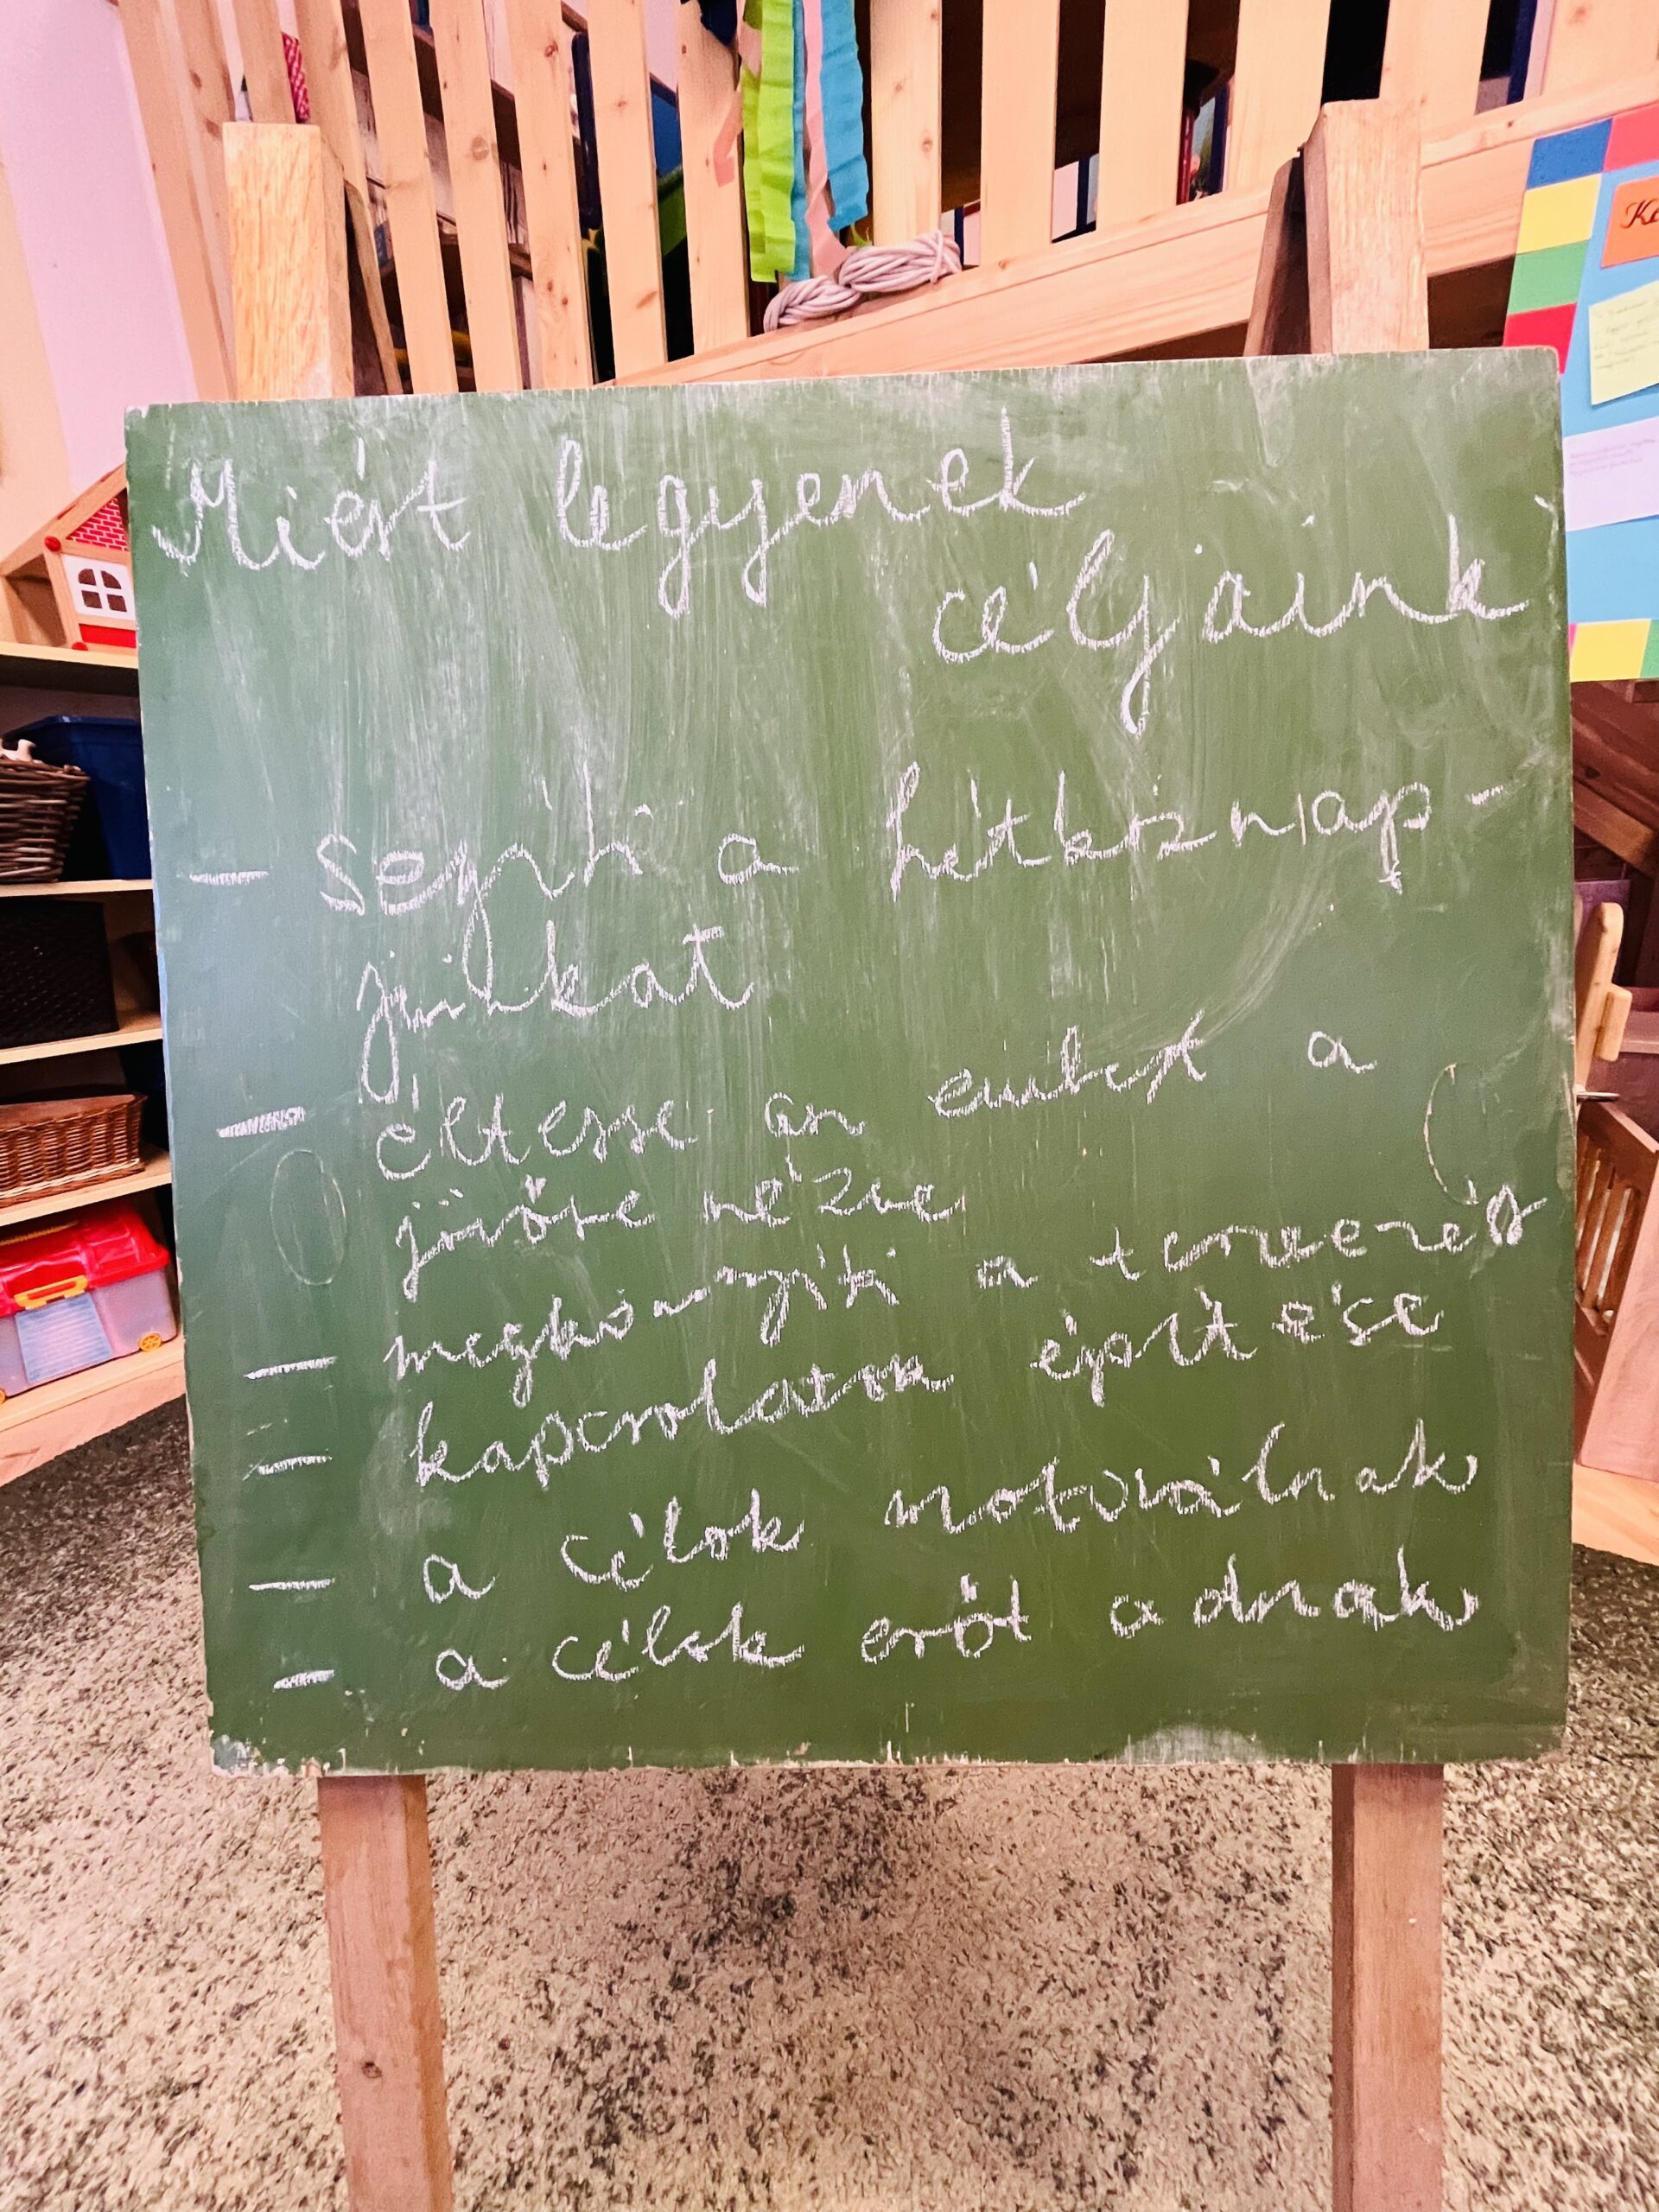 Miért legyenek
céljaink
- segíti a hétköznap-
jainkat
- éltesse az embert a
jövőre nézve
- megkönnyíti a tervezés
- kapcsolatok építése
- a célok motiválnak
- a célok erőt adnak